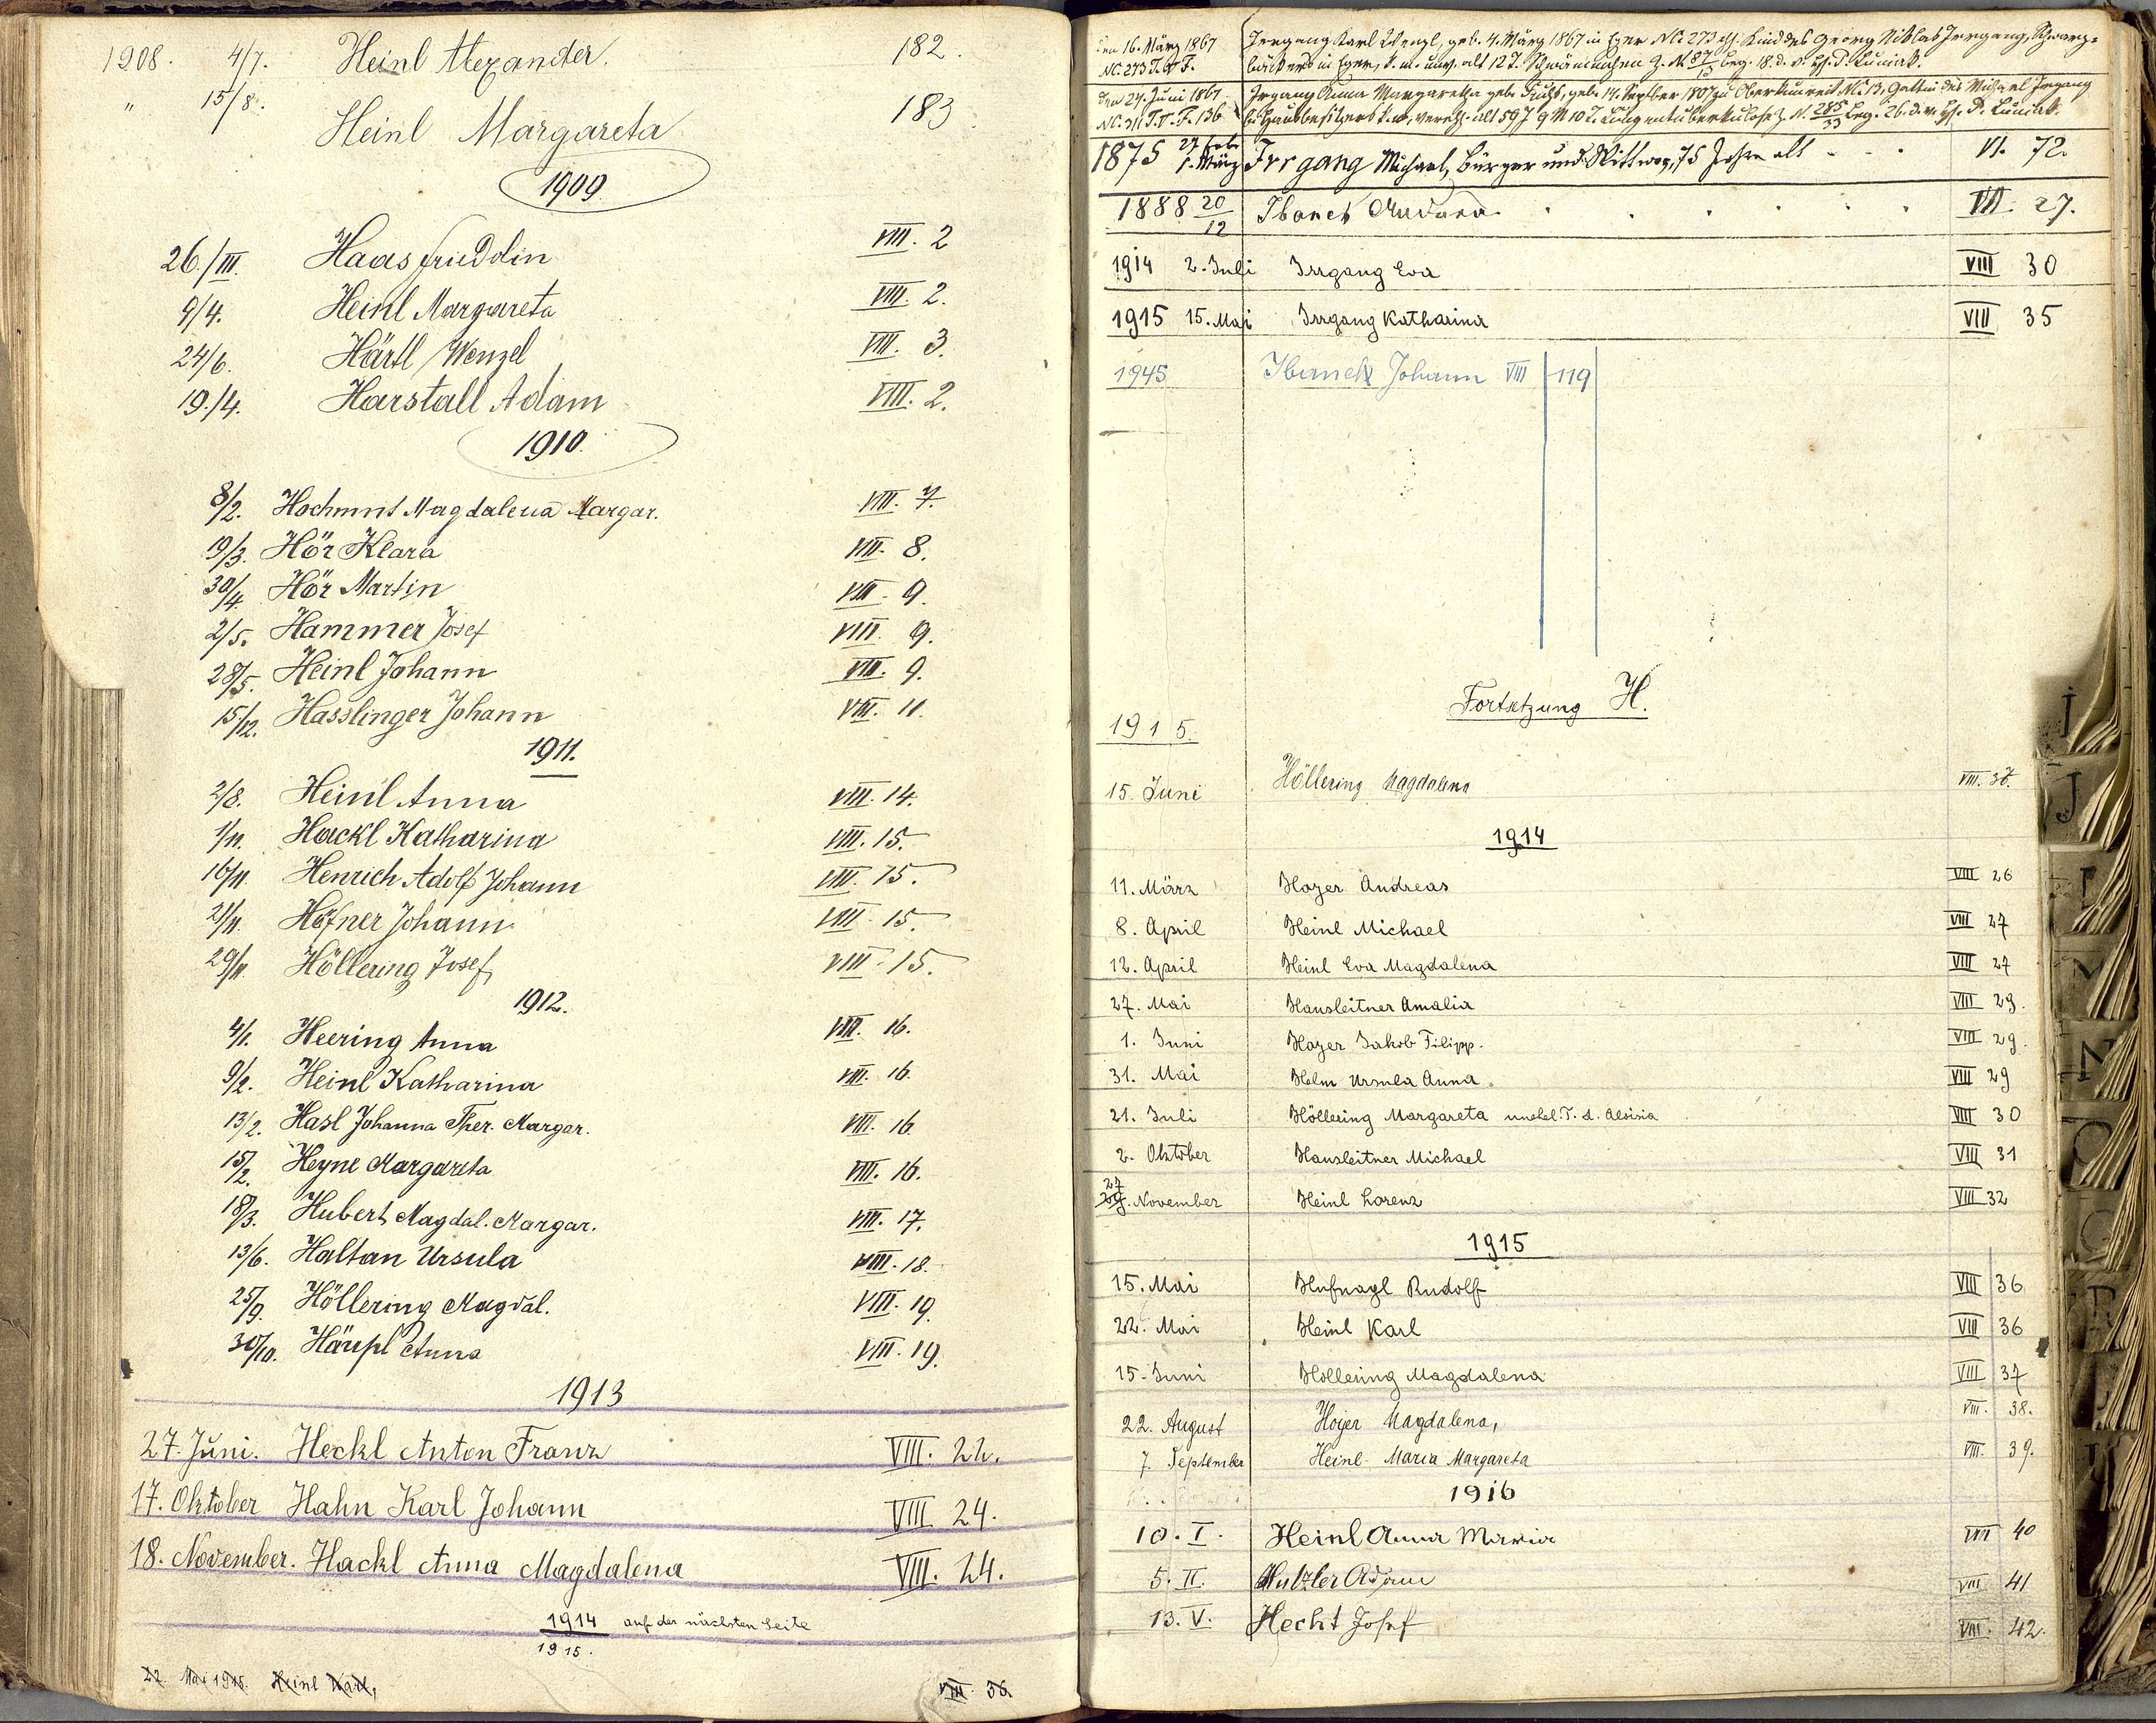 1908. 4/7. Heinl Alexander. 182.
" 15/8. Heinl Margareta 183
1909
26./III. Haas Friedolin VIII. 2
9/4. Heinl Margareta VIII. 2.
24/6. Härtl Wenzel VIII. 3.
19./4. Harstall Adam VIII. 2.
1910.
8/2. Magdalena Margar. VIII. 7.
19/3. Hör Klara VIII. 8.
30/4. Hör Martin VIII. 9.
2/5. Hammer Josef VIII. 9.
28/5. Heinl Johann VIII. 9.
15/12. Hasslinger Johann VIII. 11.
1911.
2/8. Heinl Anna VIII. 14.
1/11. Hackl Katharina VIII. 15.
16/11. Henrich Adolf Johann VIII. 15.
21/11. Höfner Johann VIII. 15.
29/11. Höllering Josef VIII. 15.
1912.
4/1. Heering Anna VIII. 16.
9/2. Heinl Katharina VIII. 16.
13/2. Hasl Johanna Ther. Margar. VIII. 16.
15/2. Heyne Margareta VIII. 16.
18/3. Hubert Magdal. Margar. VIII. 17.
13/6. Haltan Ursula VIII. 18.
25/9. Höllering Magdal. VIII. 19.
30/10. Häupl Anna VIII. 19.
1913
27. Juni. Heckl Anton Franz VIII. 22.
17. Oktober Hahn Karl Johann VIII. 24.
18. November. Hackl Anna Magdalena VIII. 24.
1914 auf der nächsten Seite
1915.
22. Mai 1915. Heinl Karl, VIII. 36.
den 16. März 1867 Irrgang Karl Wenzl, geb. 4. März 1867 in Eger Nr. 273 Kind des Georg Niklas Irrgang, Schwarz-
NC. 273 T. F. bäckers in Eger, alt 12 T.
den 24. Juni 1867 Irrgang Anna Margaretha geb. Fuchs, geb. 14. Septber 1807 zu Nr. 13, Gattin des Michael Irrgang
NC. 311 T. F. 136 Hausbesitzers alt 59 J 9 M 10 T. Lungentuberkulose
1875 27 Feb. 1. März Irrgang Michael, Bürger und Wittwer, 75 Jahre alt VI. 72.
1888 20/12 Ibanek VII. 27.
1914 2. Juli Irrgang Eva VIII 30
1915 15. Mai Irrgang Katharina VIII 35
1945 Ibanek Johann VIII 119
Fortsetzung H.
1915.
15. Juni Höllering Magdalena VIII. 37.
1914
11. März Hoyer Andreas VIII 26
8. April Heinl Michael VIII 27
12. April Heinl Eva Magdalena VIII 27
27. Mai Hausleitner Amalia VIII 29.
1. Juni Hoyer Jakob Filipp. VIII 29.
31. Mai Helm Ursula Anna VIII 29
21. Juli Höllering Margareta unehel. T. d. Aloisia VIII 30
2. Oktober Hausleitner Michael VIII 31
27. November Heinl Lorenz VIII 32
1915
15. Mai Hufnagl Rudolf VIII 36
22. Mai Heinl Karl VIII 36
15. Juni Höllering Magdalena VIII 37
22. August Hojer Magdalena, VIII. 38.
7. September Heinl Maria Margareta VIII. 39.
1916
10. I. Heinl Anna Maria VIII 40
5. II. Hutzler Adam VIII 41
13. V. Hecht Josef VIII. 42.
J
N